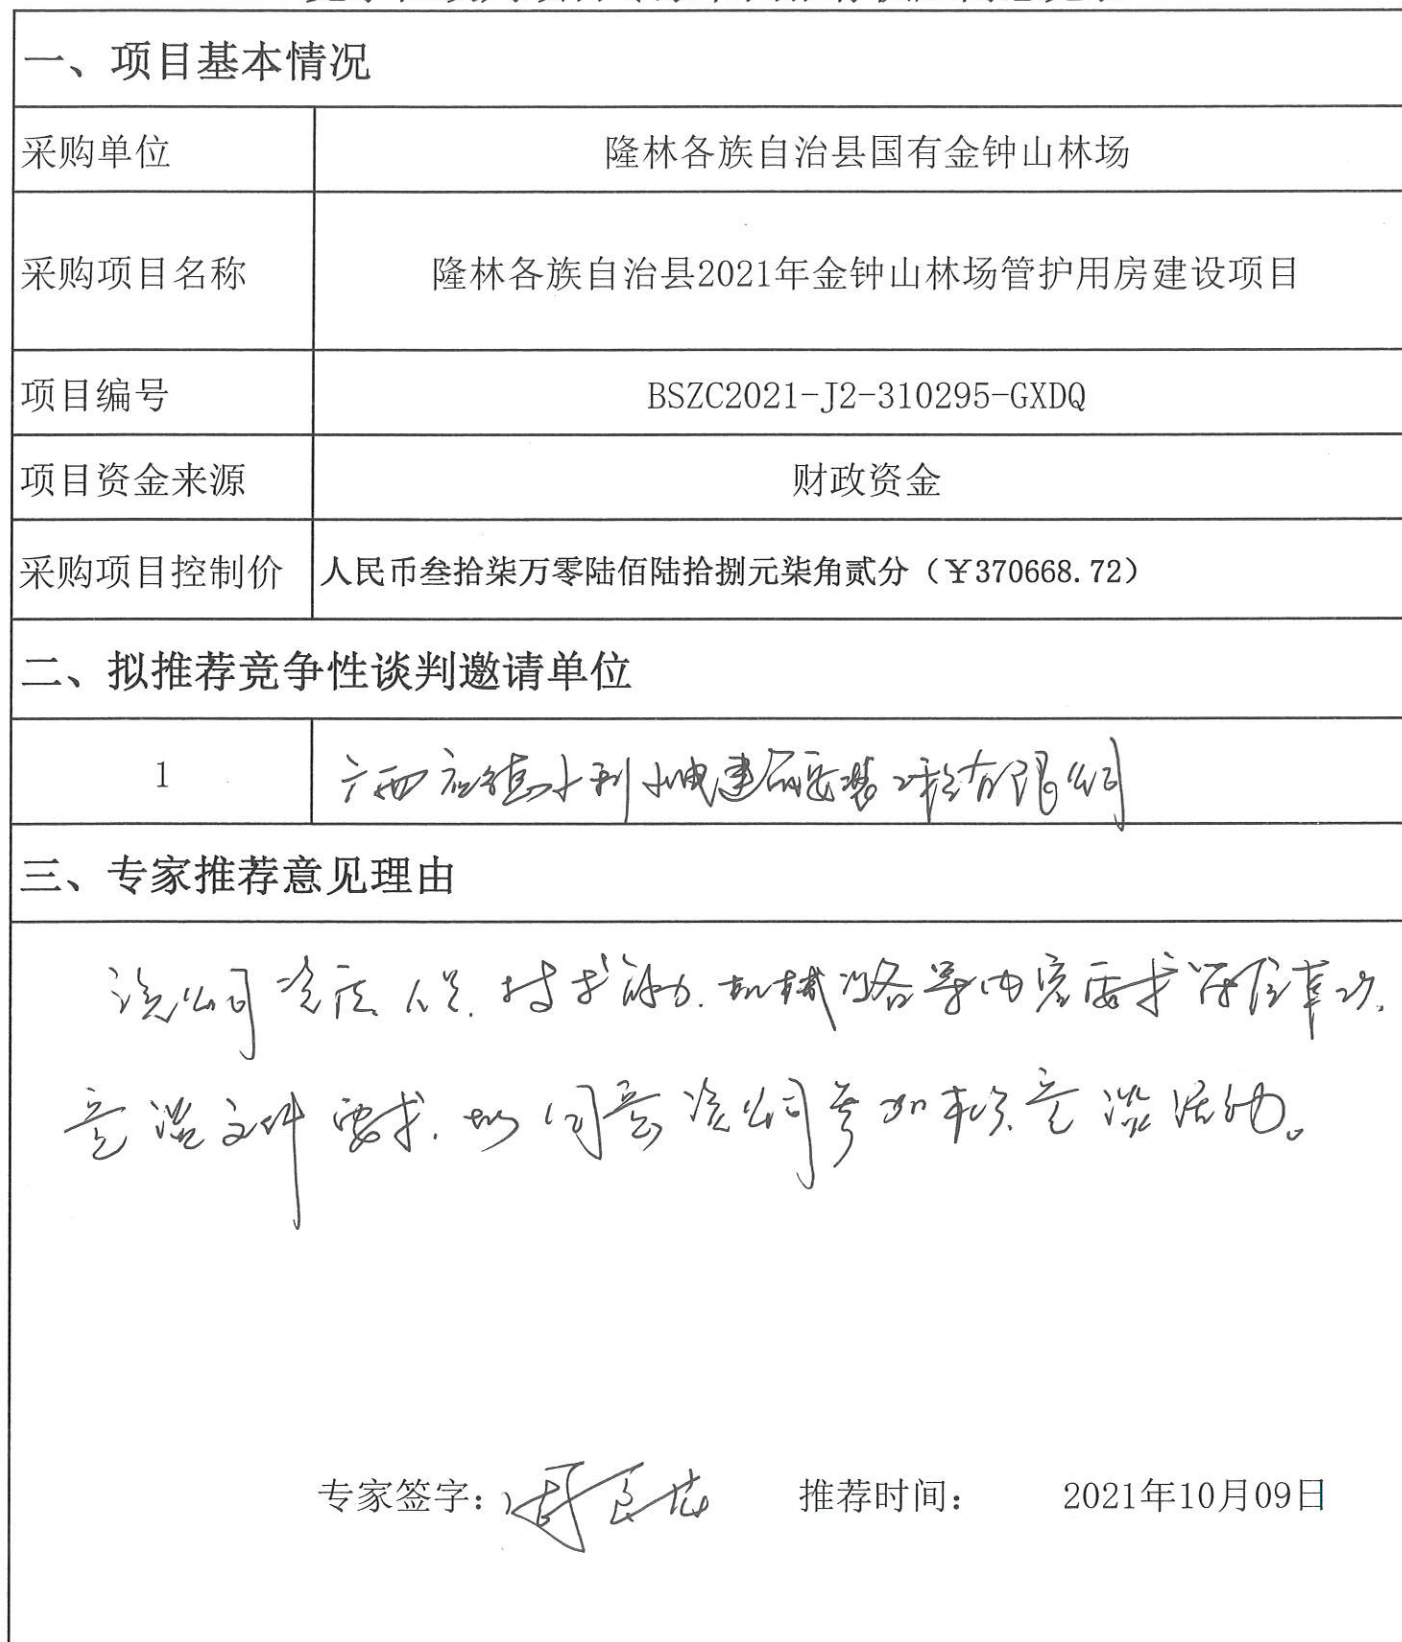 一、项目基本情况
采购单位 隆林各族自治县国有金钟山林场
采购项目名称 隆林各族自治县2021年金钟山林场管护用房建设项目
项目编号 BSZC2021-J2-310295-GXDQ
项目资金来源 财政资金
采购项目控制价 人民币叁拾柒万零陆佰陆拾捌元柒角贰分（￥370668.72）
二、拟推荐竞争性谈判邀请单位
1 广西 水利水电建 安装工程有限公司
三、专家推荐意见理由
该公司资质、人员、技术能力、机械设备等内容要求 本次
竞谈文件要求,故同意该公司参加本次竞谈活动。
专家签字： 周 推荐时间： 2021年10月09日